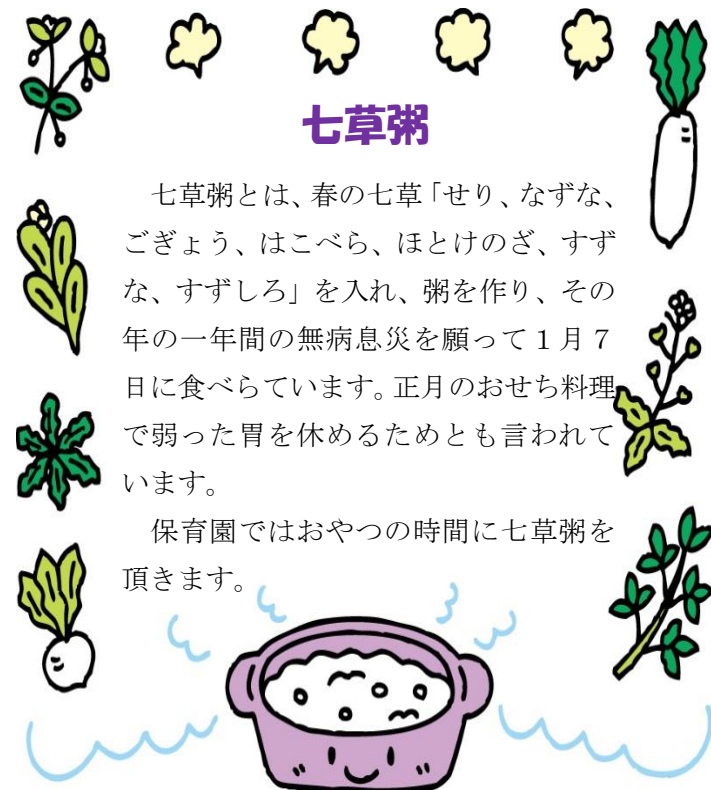 七草粥
七草粥とは、春の七草「せり、なずな、
ごぎょう、はこべら、ほとけのざ、すず
な、すずしろ」を入れ、粥を作り、その
年の一年間の無病息災を願って１月７
日に食べらています。正月のおせち料理
で弱った胃を休めるためとも言われて
います。
保育園ではおやつの時間に七草粥を
頂きます。